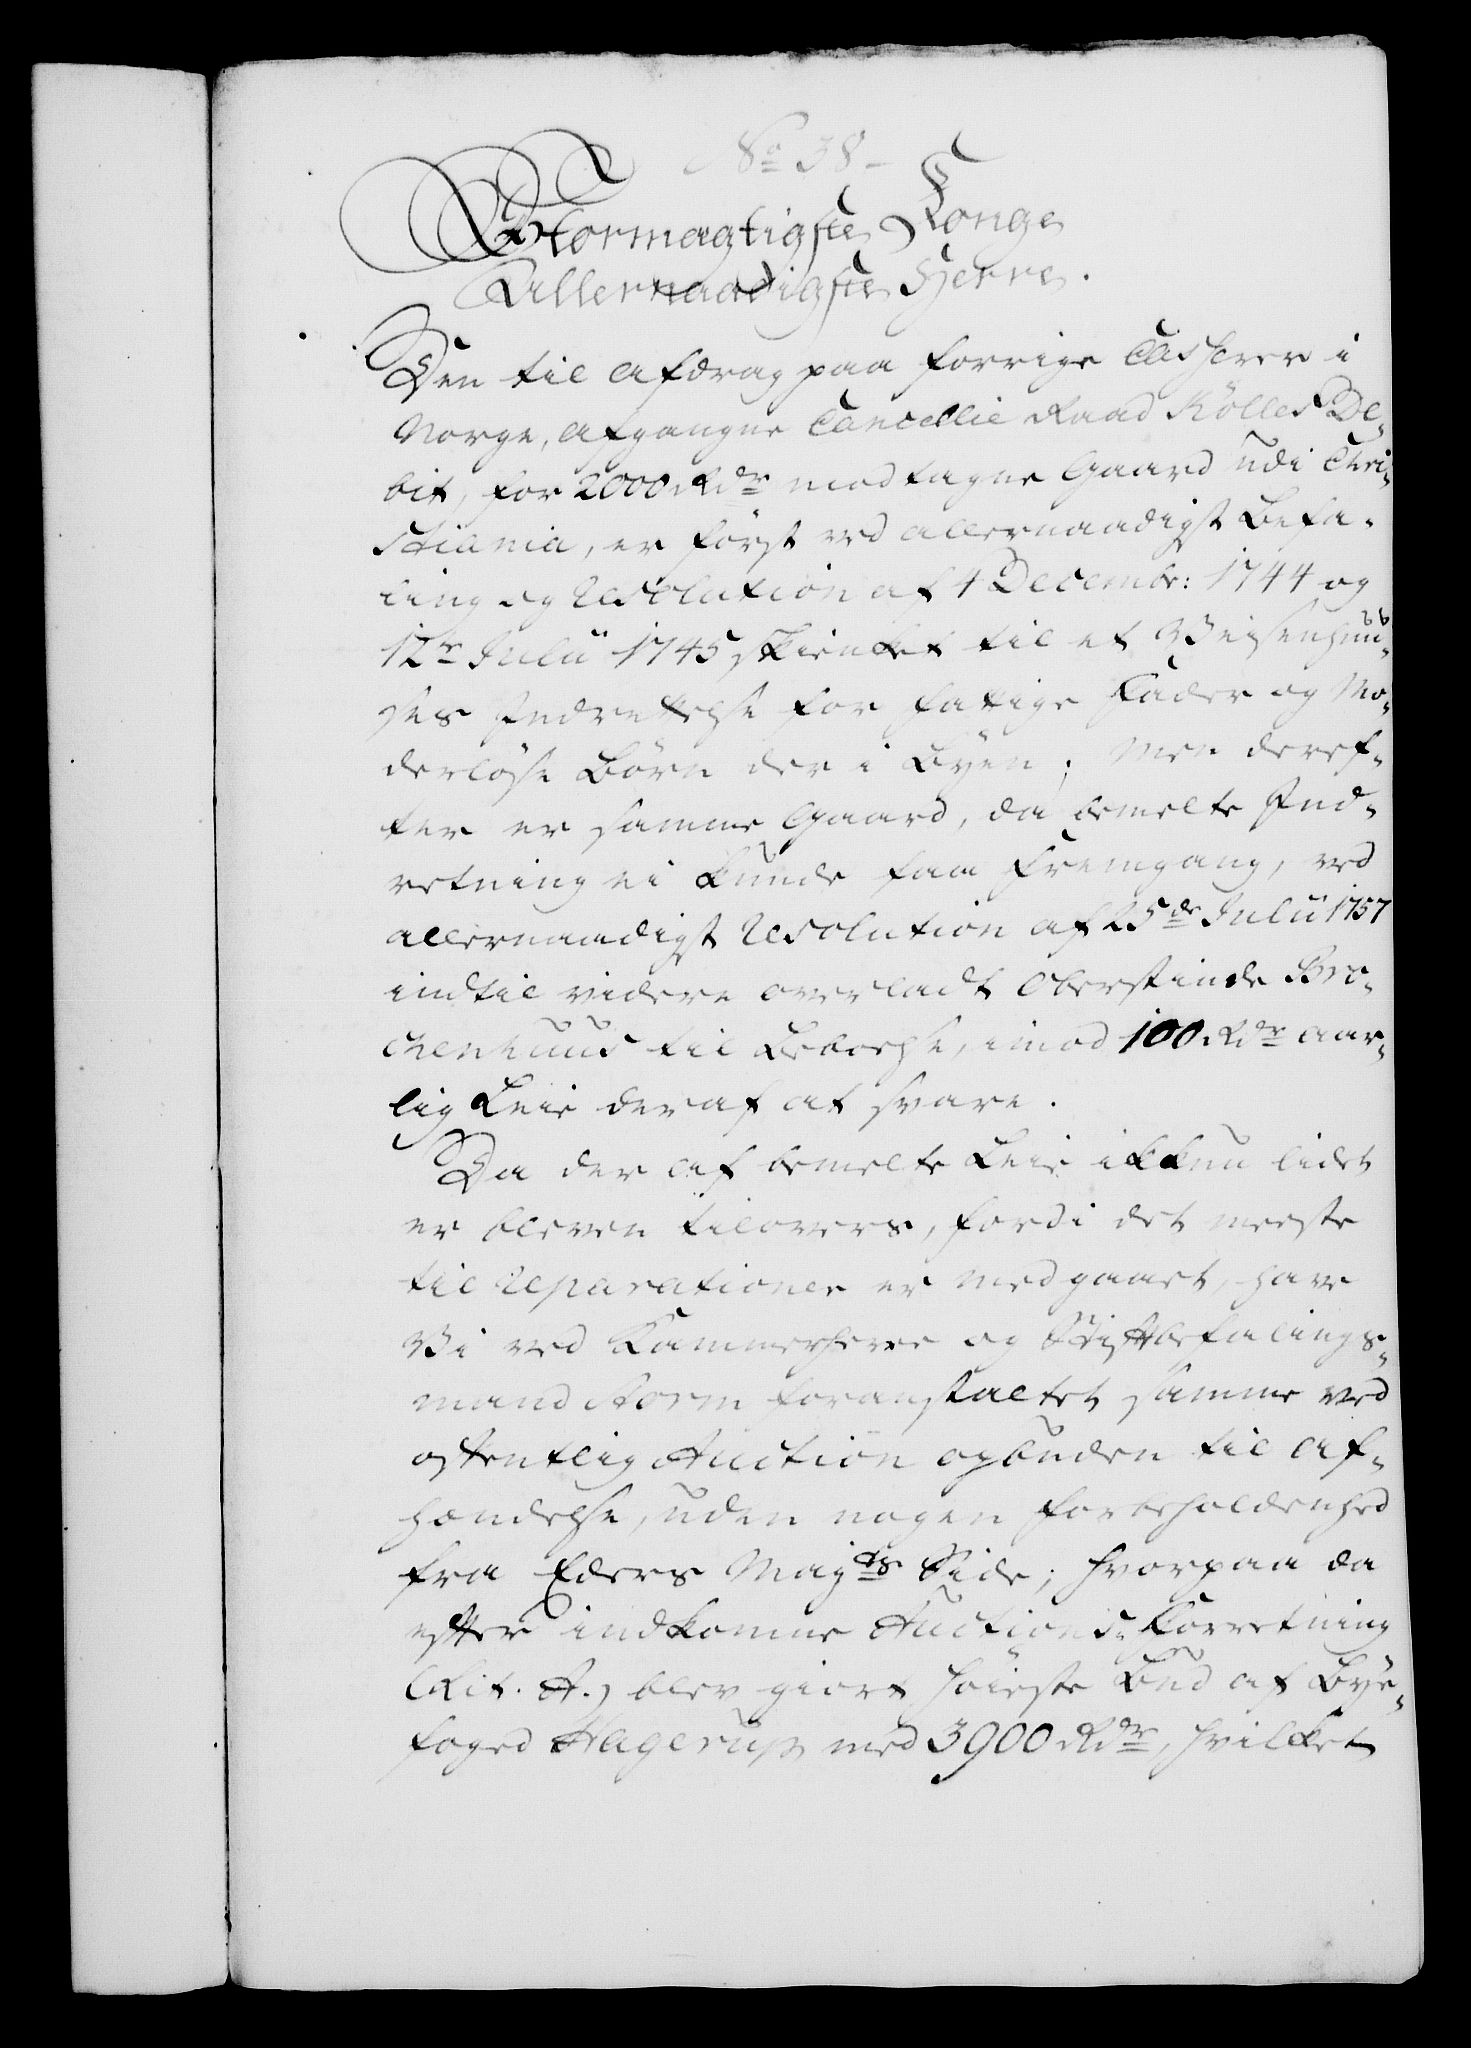 No 38
Stormægtigste Konge
Allernaadigste Herre.
Den til Afdrag paa forrige Casserer i
Norge, afgangne Cancellie Raad Kölles De-
bit, for 2000 Rdr modtagne Gaard udi Chri-
stiania, er først ved allernaadigst Befa-
ling og Resolution af 4 Decembr: 1744 og
12te Julii 1745 skienket til et Weisenhuu-
ses Indrettelse for fattige Fader og Mo-
derløse Børn der i Byen; Men deref-
ter er samme Gaard, da bemelte Ind-
retning ei kunde faa Fremgang, ved
allernaadigst Resolution af 25de Julii 1757
indtil videre overladt Oberstinde Bro-
chenhuus til Beboelse, imod 100 Rdr aar-
lig Leie deraf at svare.
Da der af bemelte Leie ikkun lidet
er bleven tilovers, fordi det meeste
til Reparationer er medgaaet, have
Vi ved Kammerherre og Stiftbefalings-
mand Storm foranstaltet samme ved
offentlig Auction opbuden til Af-
hændelse, uden nogen Forbeholdenhed
fra Eders Mayts Side; hvorpaa da
efter indkomne Auctions-Forretning
(Lit. A.) blev giort høieste Bud af Bye-
foged Hagerup med 3900 Rdr, hvilket